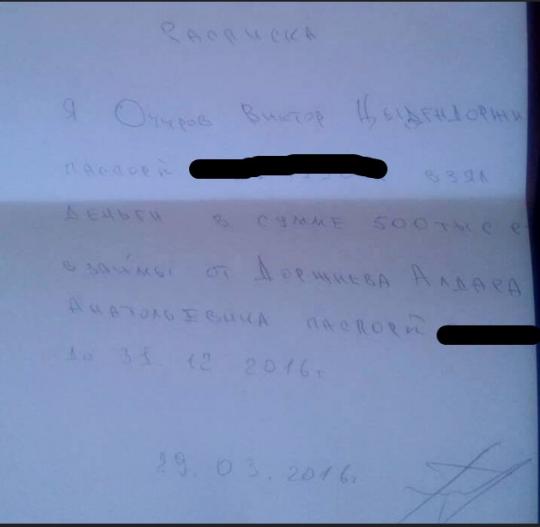 Расписка
Я Очиров Виктор Цыдендоржи
паспорт взял
деньги в сумме 500 тыс р
взаймы от Доржиева Алдара
Анатольевича паспорт
до 31 12 2016г.
29. 03. 2016г.